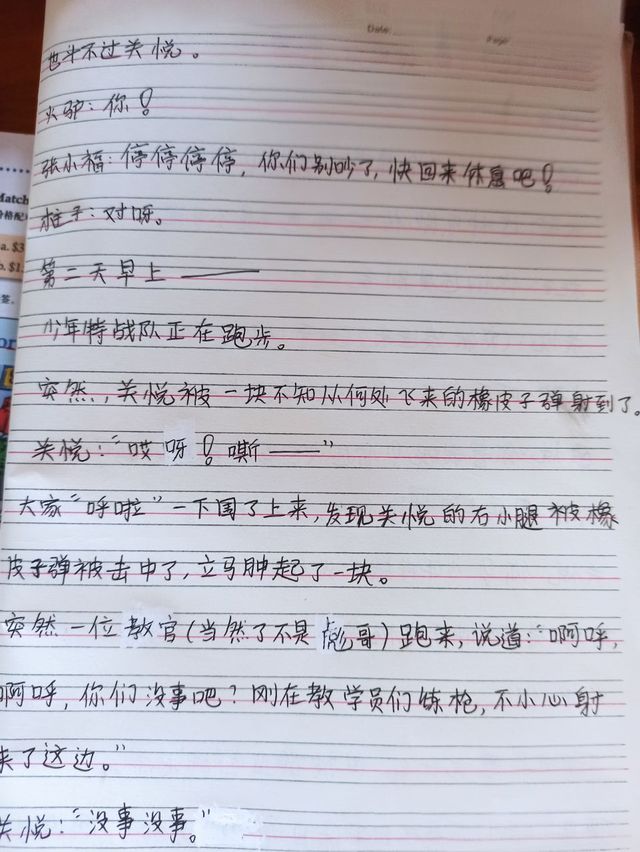 Date
Page
也斗不过关悦。
火驴：你！
张小福：停停停停，你们别吵了，快回来休息吧！
柱子：对呀。
第二天早上——
少年特战队正在跑步。
突然，关悦被一块不知从何处飞来的橡皮子弹射到了。
关悦：“哎呀！嘶——”
大家“呼啦”一下围了上来，发现关悦的右小腿被橡
皮子弹被击中了，立马肿起了一块。
突然一位教官（当然了不是彪哥）跑来，说道：“啊呼，
啊呼，你们没事吧？刚在教学员们练枪，不小心射
来了这边。”
关悦：“没事没事。”
Match
价格配
a. $3
b. $1
答。